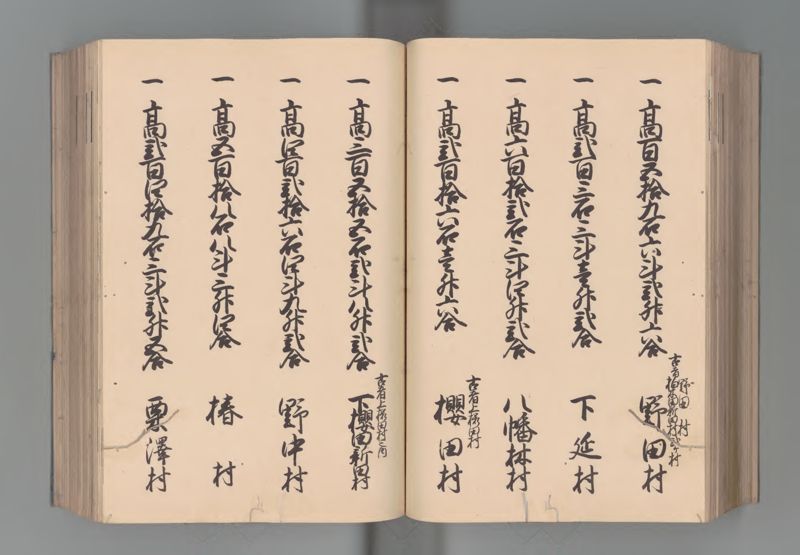 一 高百五拾九石六斗弐升六合
野田村
一 高弐百三石三斗壱升弐合
下延村
一 高六百拾弐石三斗四升弐合
八幡林村
一 高弐百拾六石壱升六合
古者上桜田村
櫻田村
一 高三百五拾五石弐斗八升弐合
古者上桜田村之内
下櫻田新田村
一 高四百弐拾六石四斗九升弐合
野中村
一 高五百拾八石八斗三升四合
椿村
一 高弐百四拾九石三斗弐升五合
粟澤村